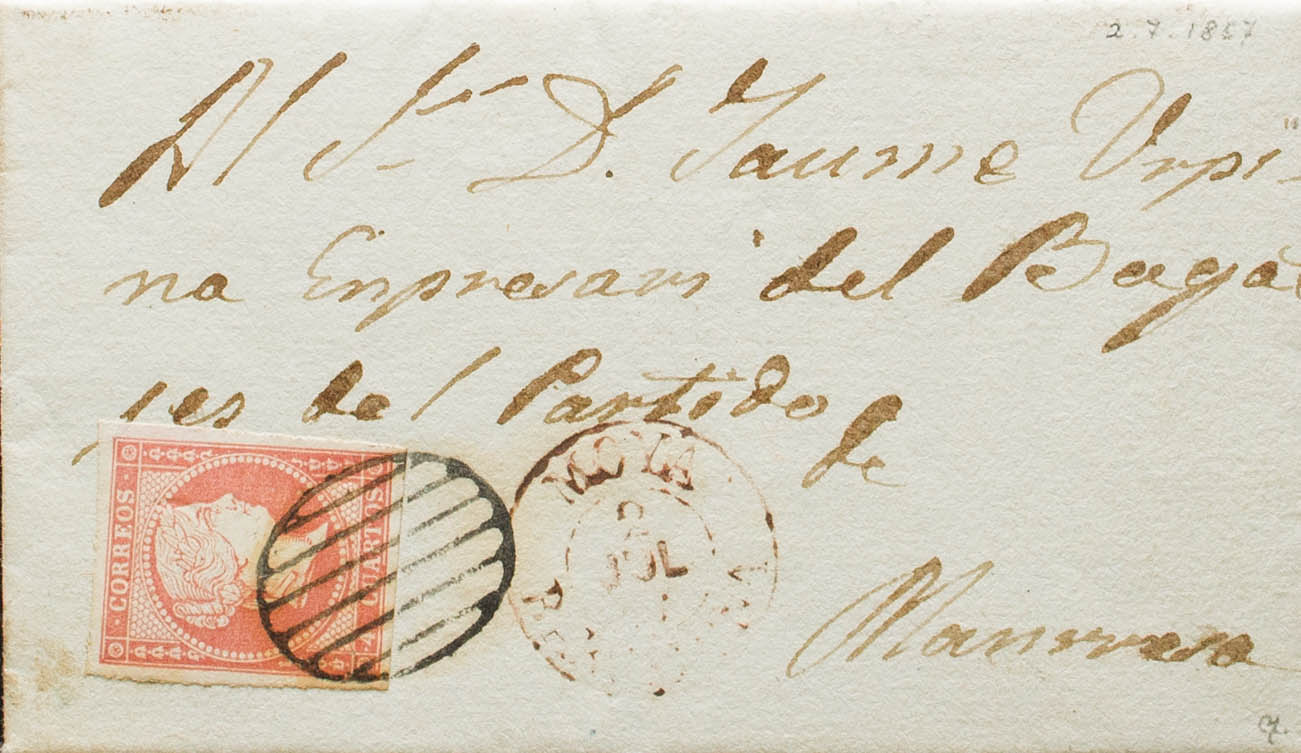 2.7.1857
Al Sr. D. Jaume Urpi-
na Enpresari del Baga
jes del Partido de
Manrresa
CORREOS
4 CUARTOS
MOYA
2
JUL